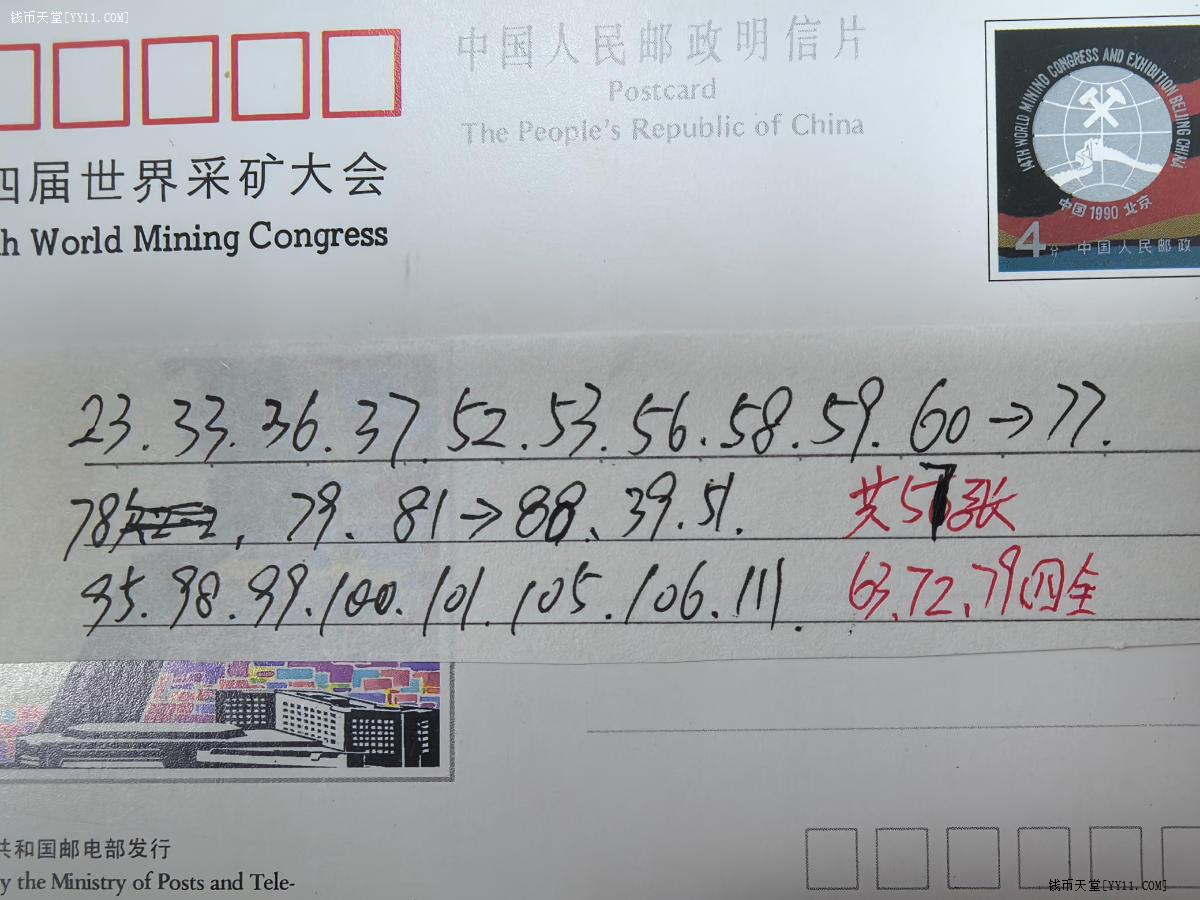 钱币天堂[YY11.COM]
中国人民邮政明信片
Postcard
The People's Republic of China
14TH WORLD MINING CONGRESS AND EXHIBITION BEIJING CHINA
中国1990北京
4分 中国人民邮政
四届世界采矿大会
h World Mining Congress
23.33.36.37.52.53.56.58.59.60→77.
78, 79. 81→88、39.51. 共57张
95.98.99.100.101.105.106.111. 63、72、79四全
共和国邮电部发行
y the Ministry of Posts and Tele-
钱币天堂[YY11.COM]